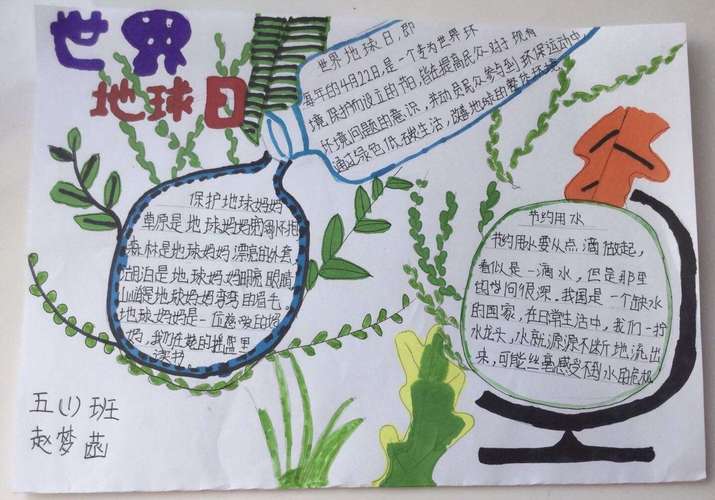 世界
地球日
世界地球日,即
每年的4月22日,是一个专为世界环
境保护而设立的节日,旨在提高民众对于现有
环境问题的意识,并动员民众参与到环保运动中,
通过绿色低碳生活,改善地球的整体环境
保护地球妈妈
草原是地球妈妈宽阔怀抱
森林是地球妈妈漂亮的外套,
湖泊是地球妈妈明亮眼睛
山峰是地球妈妈弯弯的眉毛。
地球妈妈是一位慈爱的妈
妈,我们在她的摇篮里
节约用水
节约用水要从点滴做起,
看似是一滴水,但是那里
的学问很深。我国是一个缺水
的国家,在日常生活中,我们一拧
水龙头,水就源源不断地流出
来,可能丝毫感受不到水的危机
五(1)班
赵梦菡